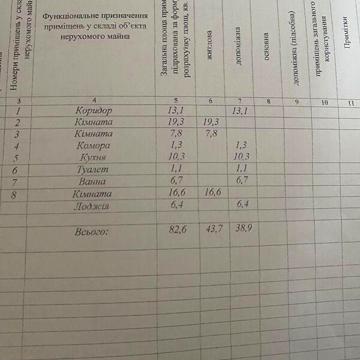 Номери приміщень у скла
нерухомого май
Функціональне призначення
приміщень у складі об'єкта
нерухомого майна
Загальна площа прим
підрахована за форм
розрахунку площ, кв.
житлова
допоміжна
основна
допоміжна (підсобна)
приміщень загального
користування
Примітки
3 4 5 6 7 8 9 10 11
1 Коридор 13,1 13,1
2 Кімната 19,3 19,3
3 Кімната 7,8 7,8
4 Комора 1,3 1,3
5 Кухня 10,3 10,3
6 Туалет 1,1 1,1
7 Ванна 6,7 6,7
8 Кімната 16,6 16,6
Лоджія 6,4 6,4
Всього: 82,6 43,7 38,9